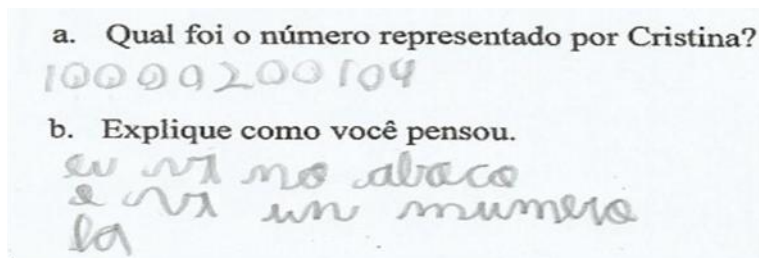 a. Qual foi o número representado por Cristina?
10000200104
b. Explique como você pensou.
eu vi no abaco
e vi un numero
la